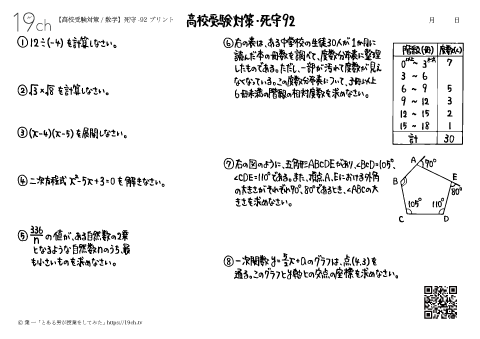 19ch 【高校受験対策/数学】死守-92 プリント 高校受験対策・死守92 月 日
① 12÷(-4) を計算しなさい。
② √3×√8 を計算しなさい。
③ (x-4)(x-5) を展開しなさい。
④ 二次方程式 x²-5x+3=0 を解きなさい。
⑤ 336/n の値が、ある自然数の2乗
となるような自然数nのうち、最
も小さいものを求めなさい。
⑥ 右の表は、ある中学校の生徒30人が1か月に
読んだ本の冊数を調べて、度数分布表に整理
したものである。ただし、一部が汚れて度数が見え
なくなっている。この度数分布表について、3冊以上
6冊未満の階級の相対度数を求めなさい。
階級(冊) 度数(人)
以上 未満
0 ~ 3 7
3 ~ 6
6 ~ 9 5
9 ~ 12 3
12 ~ 15 2
15 ~ 18 1
計 30
⑦ 右の図のように、五角形ABCDEがあり、∠BCD=105°、
∠CDE=110°である。また、頂点A、Eにおける外角
の大きさがそれぞれ70°、80°であるとき、∠ABCの大
きさを求めなさい。
A 70°
B E
80°
105° 110°
C D
⑧ 一次関数 y=5/2x+aのグラフは、点(4,3)を
通る。このグラフとy軸との交点の座標を求めなさい。
© 葉一「とある男が授業をしてみた」https://19ch.tv